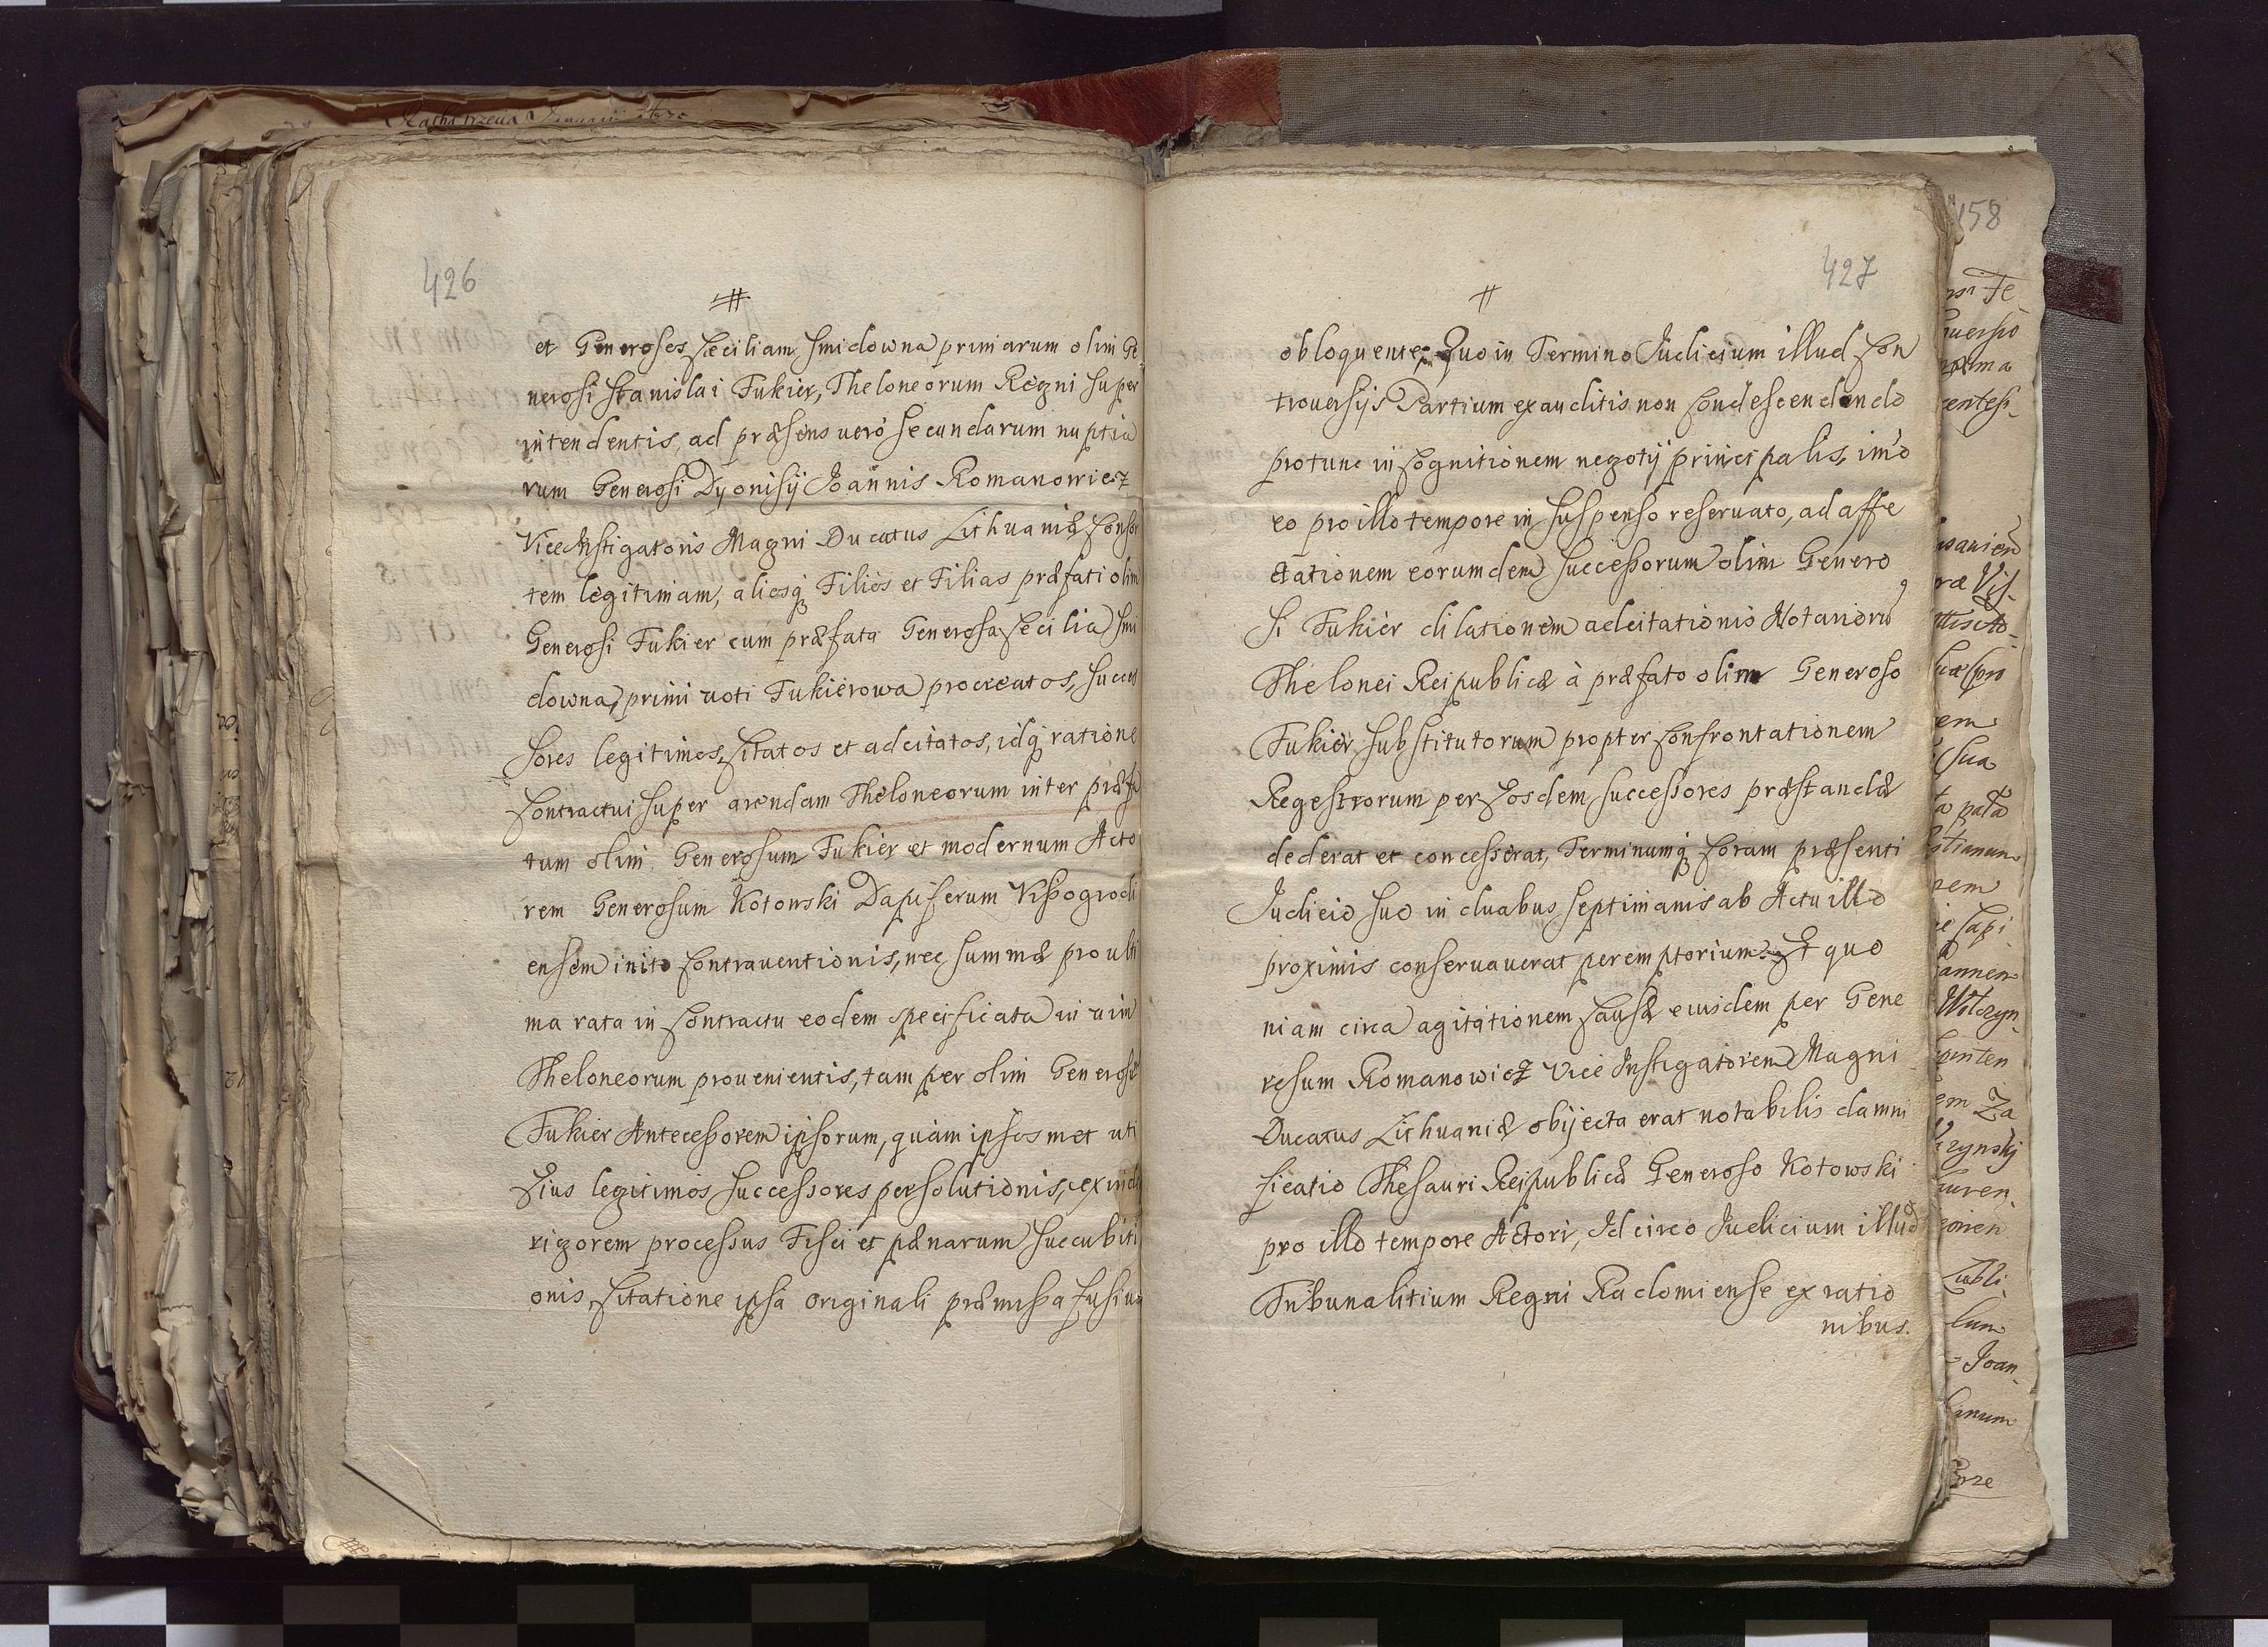 426
et Generoses Cæciliam Smidowna primarum olim Ge
nerosi Stanislai Fukier, Theloneorum Regni Super
intendentis, ad præsens uerò secundarum nuptia
rum Generosi Dyonisij Joannis Romanowicz
Vice Instigatoris Magni Ducatus Lithuaniæ Consor
tem legitimam, aliosq; Filios et Filias præfati olim
Generosi Fukier cum præfata Generosa Cecilia Smi
downa primi uoti Fukierowa procreatos, succes
sores legitimos, Citatos et adcitatos, idq; ratione
Contractui super arendam Theloneorum inter præfa
tum olim Generosum Fukier et modernum Acto
rem Generosum Kotowski Dapiferum Vissogrodi
ensem inito Contrauentionis, nec summæ pro ulti
ma rata in Contractu eodem specificata in uim
Theloneorum prouenientis, tam per olim Generosū
Fukier Antecessorem ipsorum, quàm ipsosmet uti
Eius legitimos successores persolutionis, exinde
rigorem processus Fisci et pænarum succubiti
onis, Citatione ipsa originali præmissa fusius
427
obloquente; Quo in Termino Judicium illud Con
trouersijs Partium exauditis non Condescendendo
protunc in Cognitionem negotij principalis, imò
eo pro illo tempore in suspenso reseruato, ad affe
ctationem eorumdem successorum olim Genero
si Fukier dilationem adcitationis Notariorū
Thelonei Reipublicæ à præfato olim Generoso
Fukier substitutorum propter Confrontationem
Regestrorum per Eosdem successores præstandæ
dederat et concesserat, Terminumq; Coram præsenti
Judicio suo in duabus septimanis ab Actu illo
proximis conseruauerat peremptorium. Et quo
niam circa agitationem Causæ eiusdem per Gene
rosum Romanowicz Vice Instigatorem Magni
Ducatus Lithuaniæ obijecta erat notabilis damni
ficatio Thesauri Reipublicæ Generoso Kotowski
pro illo tempore Actori, Idcirco Judicium illud
Tribunalitium Regni Radomiense ex ratio
nibus.
158